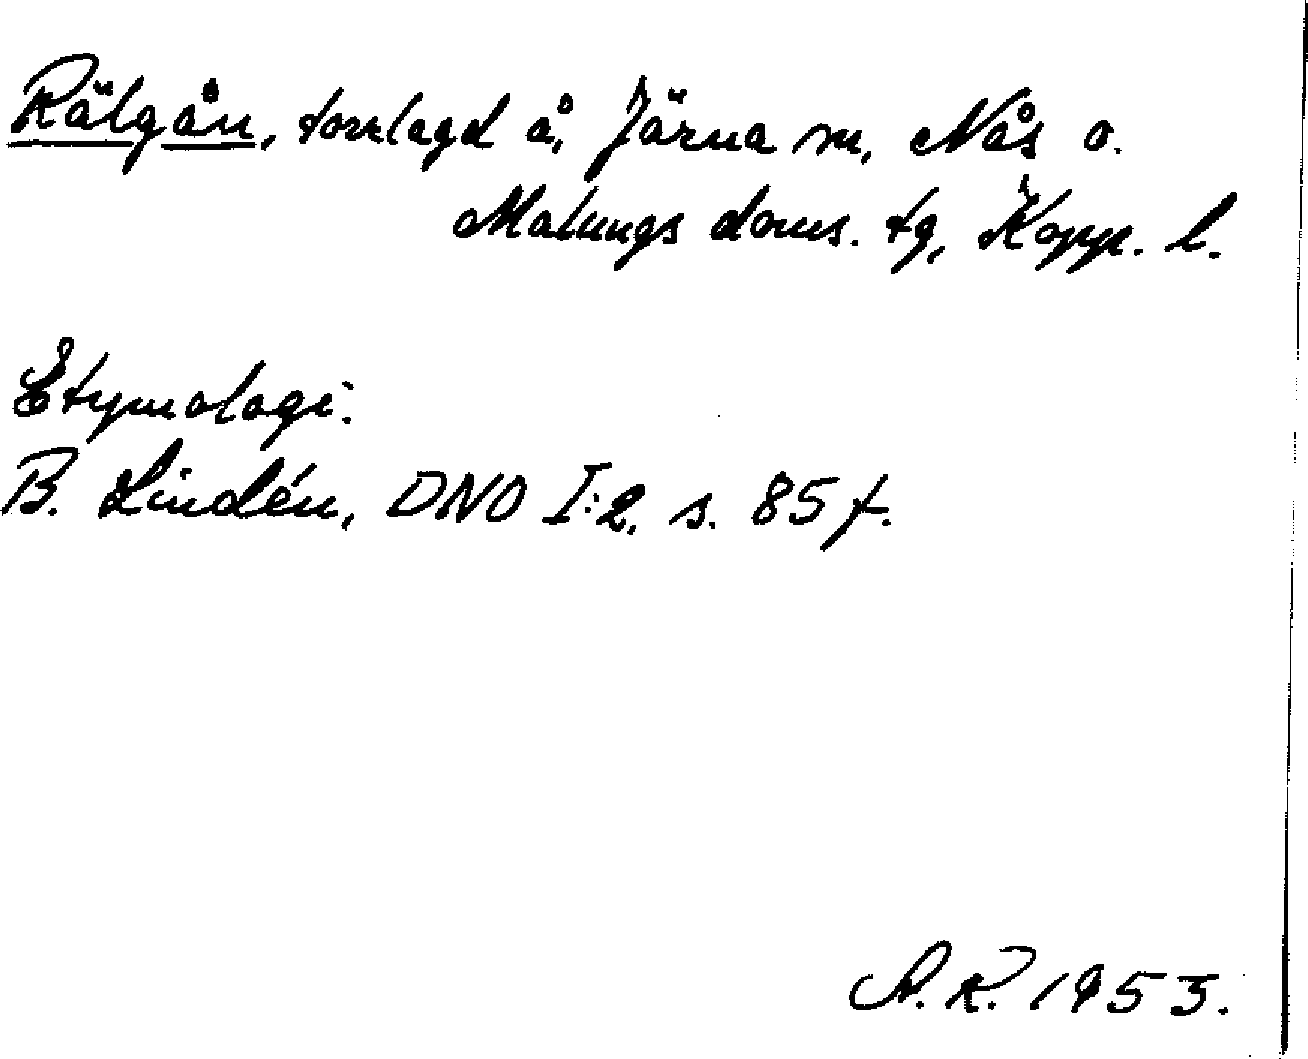 Rälgån, torrlagd å, Järna sn, Nås o.
Malungs doms. tg, Kopp. l.
Etymologi:
B. Lindén, DNO I:2, s. 85 f.
A. R. 1953.